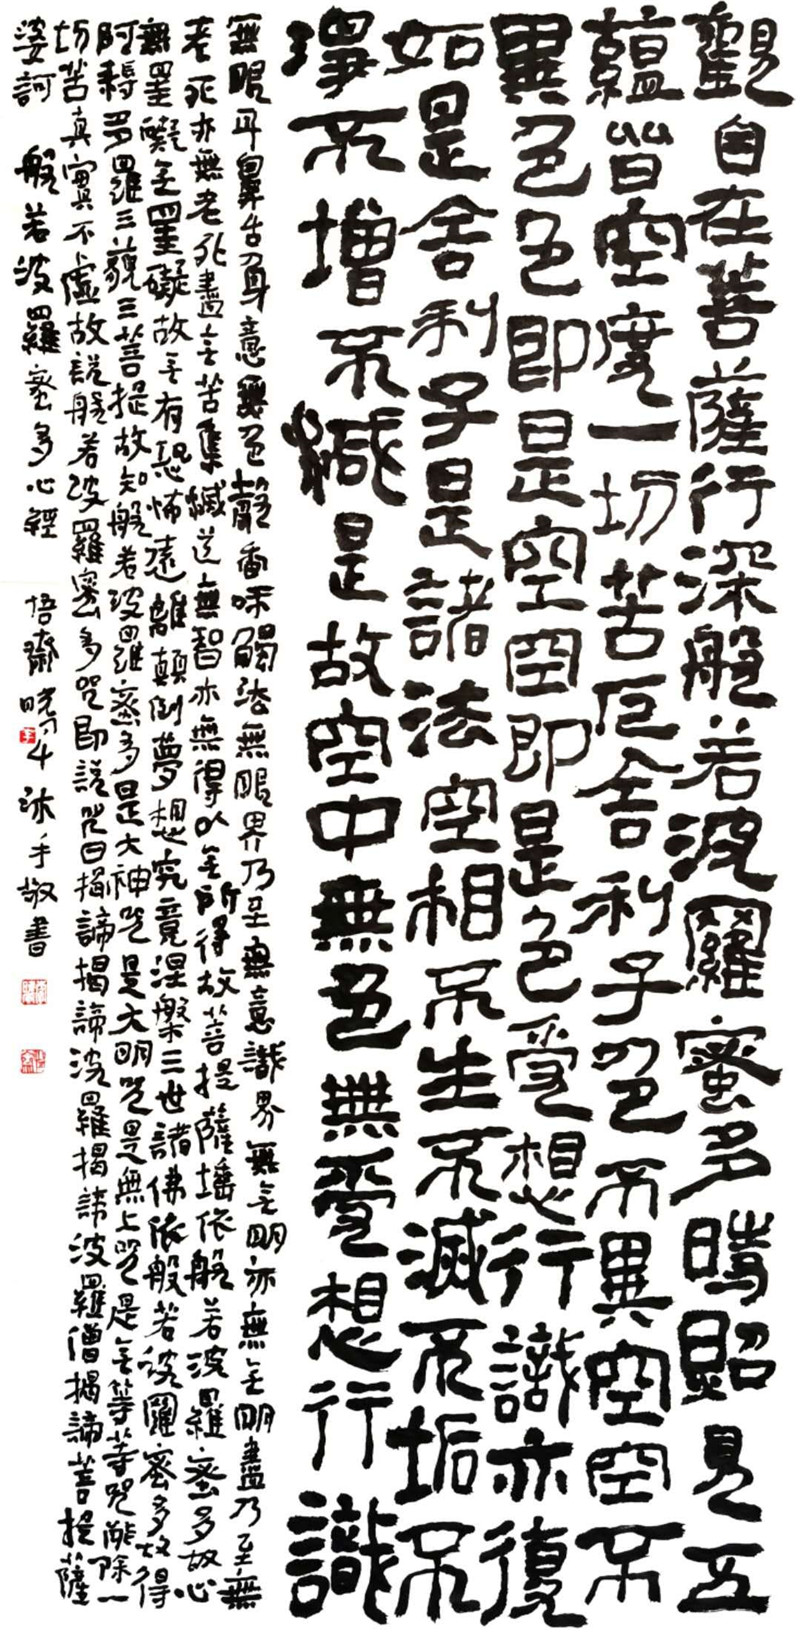 觀自在菩薩行深般若波羅蜜多時照見五
蘊皆空度一切苦厄舍利子色不異空空不
異色色即是空空即是色受想行識亦復
如是舍利子是諸法空相不生不滅不垢不
淨不增不減是故空中無色無受想行識
無眼耳鼻舌身意無色聲香味觸法無眼界乃至無意識界無无明亦無无明盡乃至無
老死亦無老死盡无苦集滅道無智亦無得以无所得故菩提薩埵依般若波羅蜜多故心
無罣礙无罣礙故无有恐怖遠離顛倒夢想究竟涅槃三世諸佛依般若波羅蜜多故得
阿耨多羅三藐三菩提故知般若波羅蜜多是大神咒是大明咒是無上咒是无等等咒能除一
切苦真實不虛故說般若波羅蜜多咒即說咒曰揭諦揭諦波羅揭諦波羅僧揭諦菩提薩
婆訶 般若波羅蜜多心經 悟齋 沐手敬書